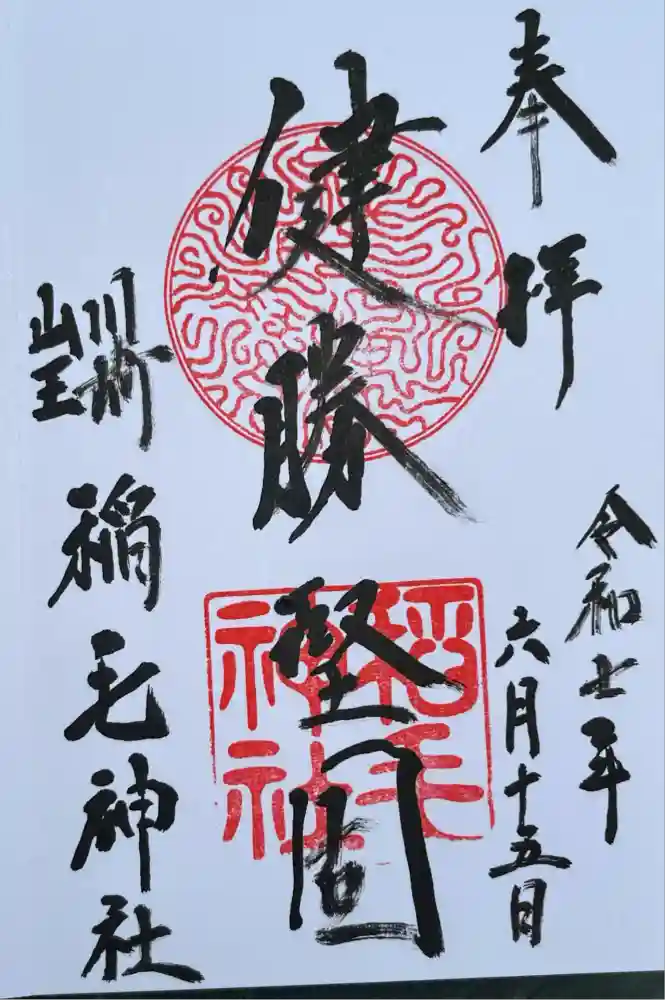 奉拝
令和七年
六月十五日
健勝堅固
稲毛神社
川崎
山王
稲毛神社